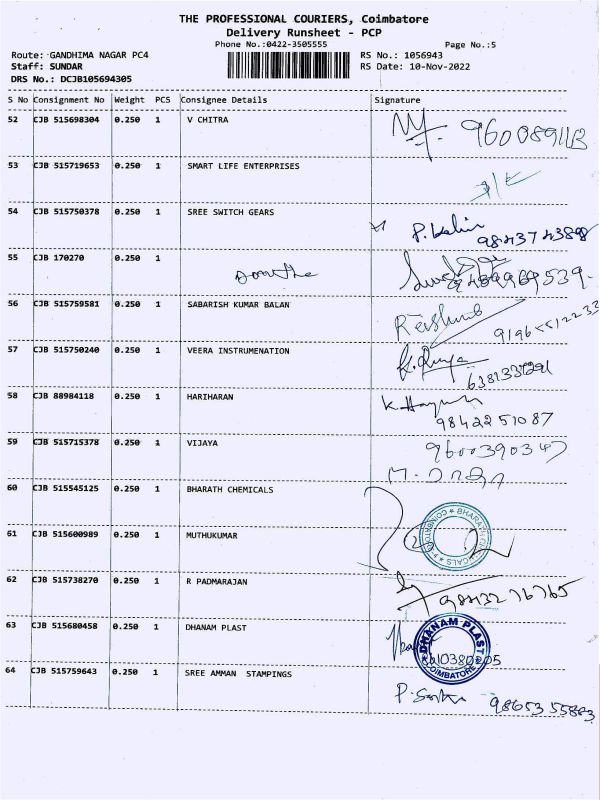 THE PROFESSIONAL COURIERS, Coimbatore
Delivery Runsheet - PCP
Phone No.:0422-3505555
Page No.:5
Route: GANDHIMA NAGAR PC4
RS No.: 1056943
Staff: SUNDAR
RS Date: 10-Nov-2022
DRS No.: DCJB105694305
S No Consignment No Weight PCS Consignee Details Signature
52 CJB 515698304 0.250 1 V CHITRA
53 CJB 515719653 0.250 1 SMART LIFE ENTERPRISES
54 CJB 515750378 0.250 1 SREE SWITCH GEARS
9843743898
55 CJB 170270 0.250 1
56 CJB 515759581 0.250 1 SABARISH KUMAR BALAN
57 CJB 515750240 0.250 1 VEERA INSTRUMENATION
58 CJB 88984118 0.250 1 HARIHARAN
9842251087
59 CJB 515715378 0.250 1 VIJAYA
9600390347
60 CJB 515545125 0.250 1 BHARATH CHEMICALS
61 CJB 515600989 0.250 1 MUTHUKUMAR
62 CJB 515738270 0.250 1 R PADMARAJAN
9843276765
63 CJB 515680458 0.250 1 DHANAM PLAST
DHANAM PLAST
COIMBATORE
64 CJB 515759643 0.250 1 SREE AMMAN STAMPINGS
9865355883